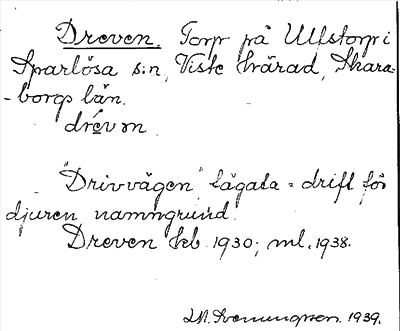 Dreven. Torp på Ulfstorp i
Sparlösa s:n, Viste härad, Skara-
-borgs län.
drévm
"Drivvägen", lägata = drift för
djuren namngrund.
Dreven kb 1930; ml. 1938.
1939.